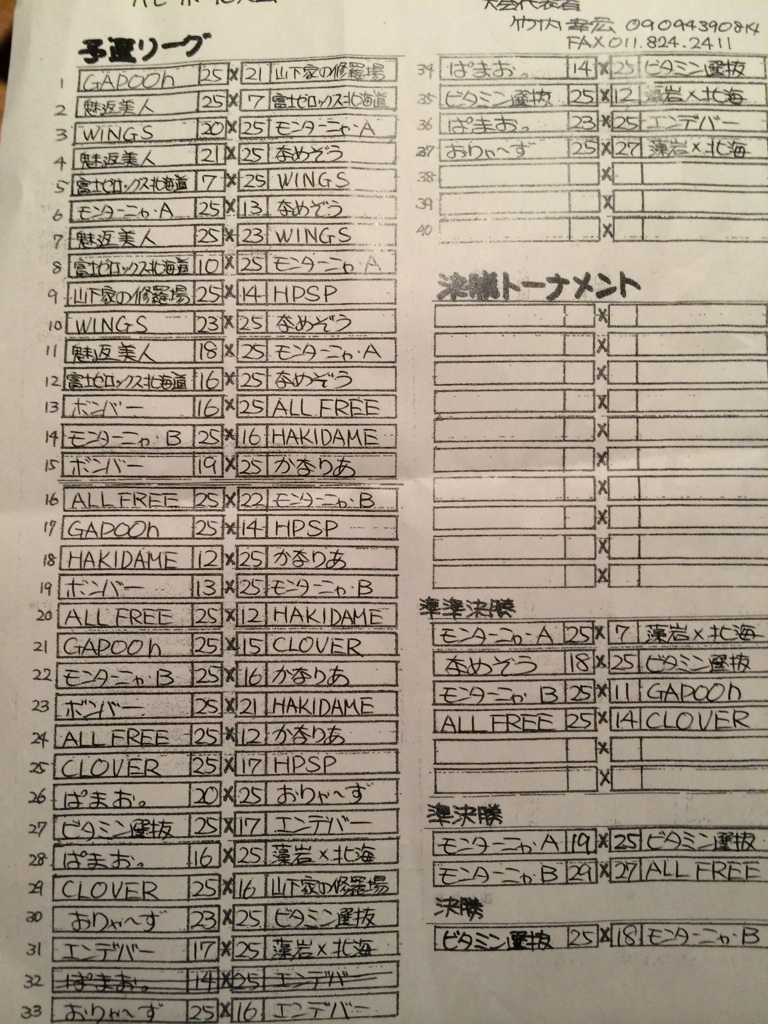 大会代表者
竹内 幸広 09094390814
FAX 011.824.2411
予選リーグ
1 GAPOOn 25 × 21 山下家の修羅場
2 魅返美人 25 × 7 富士ゼロックス北海道
3 WINGS 20 × 25 モンターニャ・A
4 魅返美人 21 × 25 なめぞう
5 富士ゼロックス北海道 7 × 25 WINGS
6 モンターニャ・A 25 × 13 なめぞう
7 魅返美人 25 × 23 WINGS
8 富士ゼロックス北海道 10 × 25 モンターニャ・A
9 山下家の修羅場 25 × 14 HPSP
10 WINGS 23 × 25 なめぞう
11 魅返美人 18 × 25 モンターニャ・A
12 富士ゼロックス北海道 16 × 25 なめぞう
13 ボンバー 16 × 25 ALL FREE
14 モンターニャ・B 25 × 16 HAKIDAME
15 ボンバー 19 × 25 かなりあ
16 ALL FREE 25 × 22 モンターニャ・B
17 GAPOOn 25 × 14 HPSP
18 HAKIDAME 12 × 25 かなりあ
19 ボンバー 13 × 25 モンターニャ・B
20 ALL FREE 25 × 12 HAKIDAME
21 GAPOOn 25 × 15 CLOVER
22 モンターニャ・B 25 × 16 かなりあ
23 ボンバー 25 × 21 HAKIDAME
24 ALL FREE 25 × 12 かなりあ
25 CLOVER 25 × 17 HPSP
26 ぱまお。 20 × 25 おりゃ〜ず
27 ビタミン選抜 25 × 17 エンデバー
28 ぱまお。 16 × 25 藻岩×北海
29 CLOVER 25 × 16 山下家の修羅場
30 おりゃ〜ず 23 × 25 ビタミン選抜
31 エンデバー 17 × 25 藻岩×北海
32 ぱまお。 14 × 25 エンデバー
33 おりゃ〜ず 25 × 16 エンデバー
34 ぱまお。 14 × 25 ビタミン選抜
35 ビタミン選抜 25 × 12 藻岩×北海
36 ぱまお。 23 × 25 エンデバー
37 おりゃ〜ず 25 × 27 藻岩×北海
38 ×
39 ×
40 ×
決勝トーナメント
×
×
×
×
×
×
×
×
×
×
準準決勝
モンターニャ・A 25 × 7 藻岩×北海
なめぞう 18 × 25 ビタミン選抜
モンターニャ・B 25 × 11 GAPOOn
ALL FREE 25 × 14 CLOVER
×
×
準決勝
モンターニャ・A 19 × 25 ビタミン選抜
モンターニャ・B 29 × 27 ALL FREE
決勝
ビタミン選抜 25 × 18 モンターニャ・B